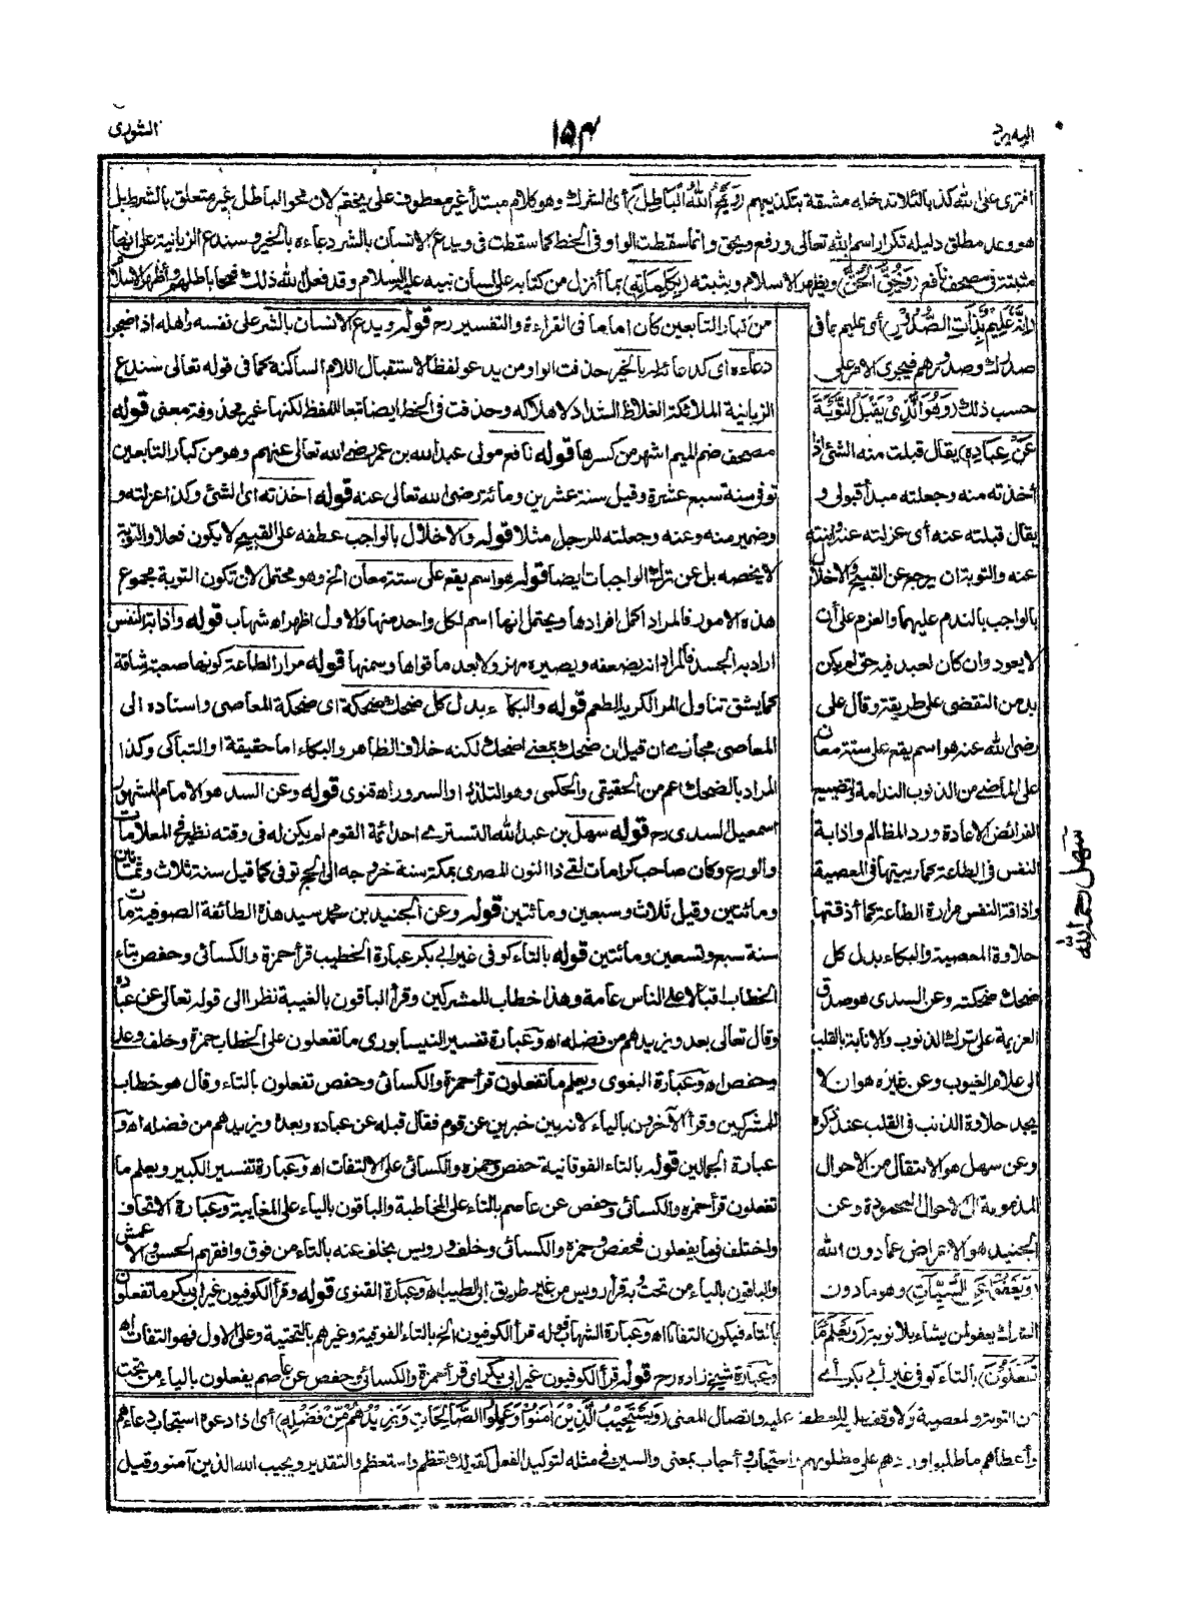 اليه يرد
١٥٤
الشورى
افترى على الله كذبا لئلا تدخله مشقة بتكذيبهم (وَيَمْحُ اللهُ الْبَاطِلَ) أى الشرك وهو كلام مبتدأ غير معطوف على يختم لان محو الباطل غير متعلق بالشرط بل
هو وعد مطلق دليله تكرار اسم الله تعالى ورفع ويحق وانما سقطت الواو فى الخط كما سقطت فى ويدع الانسان بالشر دعاءه بالخير وسندع الزبانية على انها
مثبتة فى مصحف نافع (وَيُحِقُّ الْحَقَّ) ويظهر الاسلام ويثبته (بِكَلِمَاتِهِ) بما أنزل من كتابه على لسان نبيه عليه السلام وقد فعل الله ذلك فمحا باطلهم وأظهر الاسلام
(اِنَّهُ عَلِيْمٌ بِذَاتِ الصُّدُوْرِ) أى عليم بما فى
صدرك وصدورهم فيجرى الامر على
حسب ذلك (وَهُوَ الَّذِىْ يَقْبَلُ التَّوْبَةَ
عَنْ عِبَادِهِ) يقال قبلت منه الشئ اذا
أخذته منه وجعلته مبدأ قبولى و
يقال قبلته عنه أى عزلته عنه وأبنته
عنه والتوبة ان يرجع عن القبيح والاخلال
بالواجب بالندم عليهما والعزم على أن
لا يعود وان كان لعبد فيه حق لم يكن
بد من التفصى على طريقة وقال على
رضى الله عنه هو اسم يقع على ستة معان
على الماضى من الذنوب الندامة ولتضييع
الفرائض الاعادة ورد المظالم واذابة
النفس فى الطاعة كما ربيتها فى المعصية
واذاقة النفس مرارة الطاعة كما أذقتها
حلاوة المعصية والبكاء بدل كل
ضحك ضحكته وعن السدى هو صدق
العزيمة على ترك الذنوب والانابة بالقلب
الى علام الغيوب وعن غيره هو ان لا
يجد حلاوة الذنب فى القلب عند ذكره
وعن سهل هو الانتقال من الاحوال
المذمومة الى الاحوال المحمودة وعن
الجنيد هو الاعراض عما دون الله
(وَيَعْفُوْا عَنِ السَّيِّاٰتِ) وهو ما دون
الشرك يعفو لمن يشاء بلا توبة (وَيَعْلَمُ مَا
تَفْعَلُوْنَ) بالتاء كوفى غير أبى بكر أى
من كبار التابعين كان اماما فى القراءة والتفسير رح قوله ويدع الانسان بالشر على نفسه واهله اذا ضجر
دعاءه اى كدعائه له بالخير حذفت الواو من يدعو لفظا لاستقبال اللام الساكنة كما فى قوله تعالى سندع
الزبانية الملائكة الغلاظ الشداد لاهلاكه وحذفت فى الخط ايضا تبعا للفظ لكنها غير محذوفة معنى قوله
مصحف ضم الميم اشهر من كسرها قوله نافع مولى عبدالله بن عمر رضى الله تعالى عنهم وهو من كبار التابعين
توفى سنة سبع عشرة وقيل سنة عشرين ومائة رضى الله تعالى عنه قوله اخذته اى الشئ وكذا عزلته و
وضمير منه وعنه وجعلته للرجل مثلا قوله والاخلال بالواجب عطفه على القبيح لا يكون فعلا والتوبة
لا يخصه بل عن ترك الواجبات ايضا قوله هو اسم يقع على ستة معان الخ وهو محتمل لان تكون التوبة مجموع
هذه الامور فالمراد اكمل افرادها ويحتمل انها اسم لكل واحد منها والاول اظهر اه شهاب قوله واذابة النفس
اراد به الجسد فالمراد انه يضعفه ويصيره مهزولا بعد ما قواها وسمنها قوله مرارة الطاعة كونها صعبة شاقة
كما يشق تناول المر الكريه الطعم قوله والبكاء بدل كل ضحك ضحكته اى ضحكة المعاصى واسناده الى
المعاصى مجازى ان قيل ان ضحك بمعنى اضحك لكنه خلاف الظاهر والبكاء اما حقيقة او التباكى وكذا
المراد بالضحك اعم من الحقيقى والحكمى وهو التلذذ والسرور اه قنوى قوله وعن السدى هو الامام المشهور
اسمعيل السدى رح قوله سهل بن عبدالله التسترى احد ائمة القوم لم يكن له فى وقته نظير فى المعلامات
والورع وكان صاحب كرامات لقى ذا النون المصرى بمكة سنة خروجه الى الحج توفى كما قيل سنة ثلاث وثمانين
ومائتين وقيل ثلاث وسبعين ومائتين قوله وعن الجنيد بن محمد سيد هذه الطائفة الصوفية مات
سنة سبع وتسعين ومائتين قوله بالتاء كوفى غير ابى بكر عبارة الخطيب قرأ حمزة والكسائى وحفص بتاء
الخطاب اقبالا على الناس عامة وهذا خطاب للمشركين وقرأ الباقون بالغيبة نظرا الى قوله تعالى عن عباده
وقال تعالى بعد ويزيدهم من فضله اه وعبارة تفسير النيسابورى ما تفعلون على الخطاب حمزة وخلف وعلى
وحفص اه وعبارة البغوى ويعلم ما تفعلون قرأ حمزة والكسائى وحفص تفعلون بالتاء وقال هو خطاب
للمشركين وقرأ الآخرون بالياء لانه بين خبرين عن قوم فقال قبله عن عباده وبعده ويزيدهم من فضله اه و
عبارة الجمالين قوله بالتاء الفوقانية حفص وحمزه والكسائى على الالتفات اه وعبارة تفسير الكبير ويعلم ما
تفعلون قرأ حمزه والكسائى وحفص عن عاصم بالتاء على المخاطبة والباقون بالياء على المغايبة وعبارة الاتحاف
واختلف فى ما يفعلون فحفص وحمزة والكسائى وخلف ورويس بخلف عنه بالتاء من فوق وافقهم الحسن والاعمش
والباقون بالياء من تحت وبه قرأ رويس من غير طريق ابى الطيب اه وعبارة القنوى قوله وقرأ الكوفيون غير ابى بكر ما تفعلون
بالتاء فيكون التفاتا اه وعبارة الشهاب قوله قرأ الكوفيون الخ بالتاء الفوقية وغيرهم بالتحتية وعلى الاول فهو التفات اه
وعبارة شيخ زاده رح قوله قرأ الكوفيون غير ابى بكر اى قرأ حمزة والكسائى وحفص عن عاصم يفعلون بالياء من تحت
من التوبة والمعصية ولا وقف عليه للعطف عليه واتصال المعنى (وَيَسْتَجِيْبُ الَّذِيْنَ اٰمَنُوْا وَعَمِلُوا الصَّالِحَاتِ وَيَزِيْدُهُمْ مِّنْ فَضْلِهِ) أى اذا دعوه استجاب دعاءهم
وأعطاهم ما طلبوا وزادهم على مطلوبهم واستجاب وأجاب بمعنى والسين فى مثله لتوكيد الفعل كقولك تعظم واستعظم والتقدير ويجيب الله الذين آمنوا وقيل
سهل رحمه الله